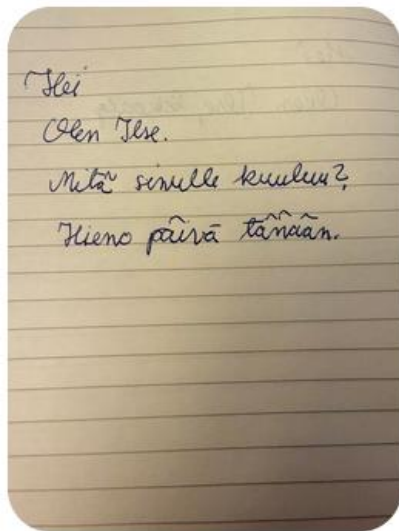 Hei
Olen Ilse.
Mitä sinulle kuuluu?
Hieno päivä tänään.